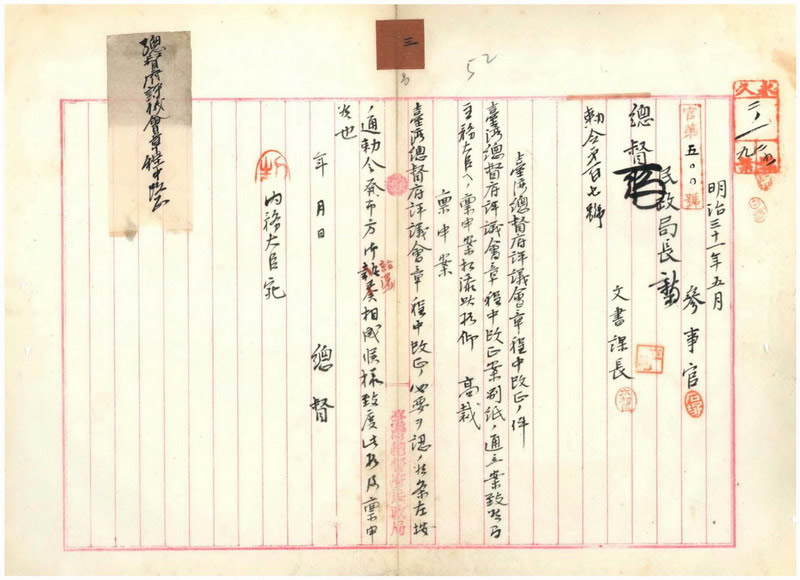 三
52
永久
官第五〇〇號
明治三十一年五月
參事官
民政局長
總督
文書課長
勅令第百七號
臺灣總督府評議會章程中改正ノ件
臺灣總督府評議會章程中改正案別紙ノ通立案致候ニ付
主務大臣ヘノ稟申案相添此段仰 高裁
稟申案
臺灣總督府評議會章程中改正ノ必要ヲ認メ候条左按
ノ通勅令発布方御執奏相成候様致度此段及稟申
候也
年 月 日
總督
內務大臣宛
臺灣總督府民政局
總督府評議會章程中改正